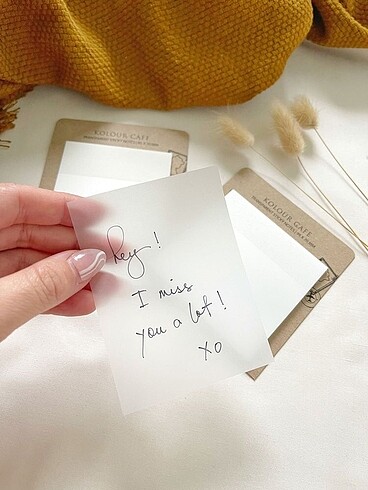 KOLOUR CAFE
hey!
I miss
you a lot!
xo
KOLOUR CAFE